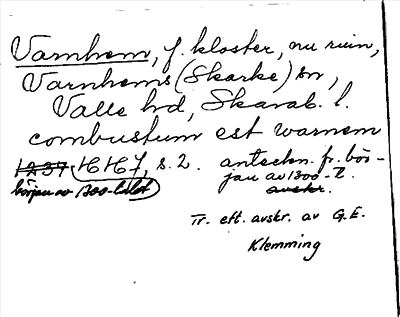 Varnhem, f. kloster, nu ruin,
Varnhems (Skarke) sn,
Valle hd, Skarab. l.
combustum est warnem
1237 HH7, s. 2. anteckn. fr. bör-
början av 1200-talet jan av 1300-t.
avskr.
Tr. eft. avskr. av G.E.
Klemming